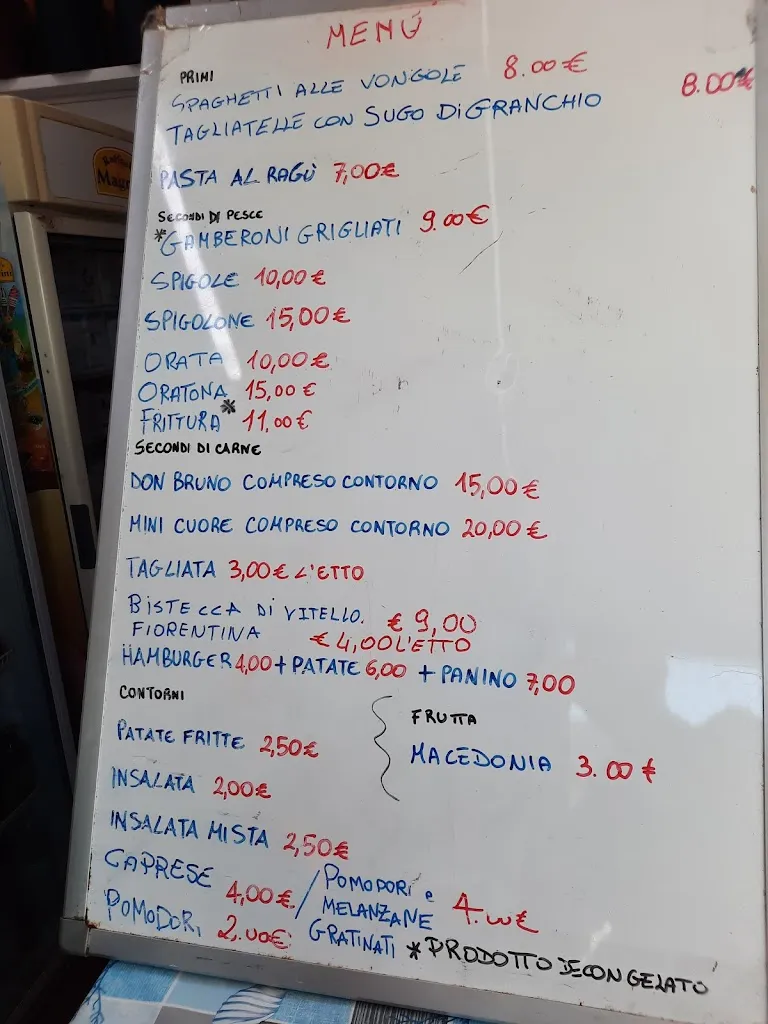 MENÚ
PRIMI
SPAGHETTI ALLE VONGOLE 8.00€
TAGLIATELLE CON SUGO DI GRANCHIO 8.00€
PASTA AL RAGÙ 7,00€
SECONDI DI PESCE
*GAMBERONI GRIGLIATI 9.00€
SPIGOLE 10,00€
SPIGOLONE 15,00€
ORATA 10,00€
ORATONA 15,00€
FRITTURA* 11,00€
SECONDI DI CARNE
DON BRUNO COMPRESO CONTORNO 15,00€
MINI CUORE COMPRESO CONTORNO 20,00€
TAGLIATA 3,00€ L'ETTO
BISTECCA DI VITELLO. € 9,00
FIORENTINA € 4,00 L'ETTO
HAMBURGER 4,00 + PATATE 6,00 + PANINO 7,00
CONTORNI
PATATE FRITTE 2,50€
INSALATA 2,00€
INSALATA MISTA 2,50€
CAPRESE 4,00€ /
POMODORI 2.00€
FRUTTA
MACEDONIA 3.00€
POMODORI e
MELANZANE 4.00€
GRATINATI
*PRODOTTO DECONGELATO